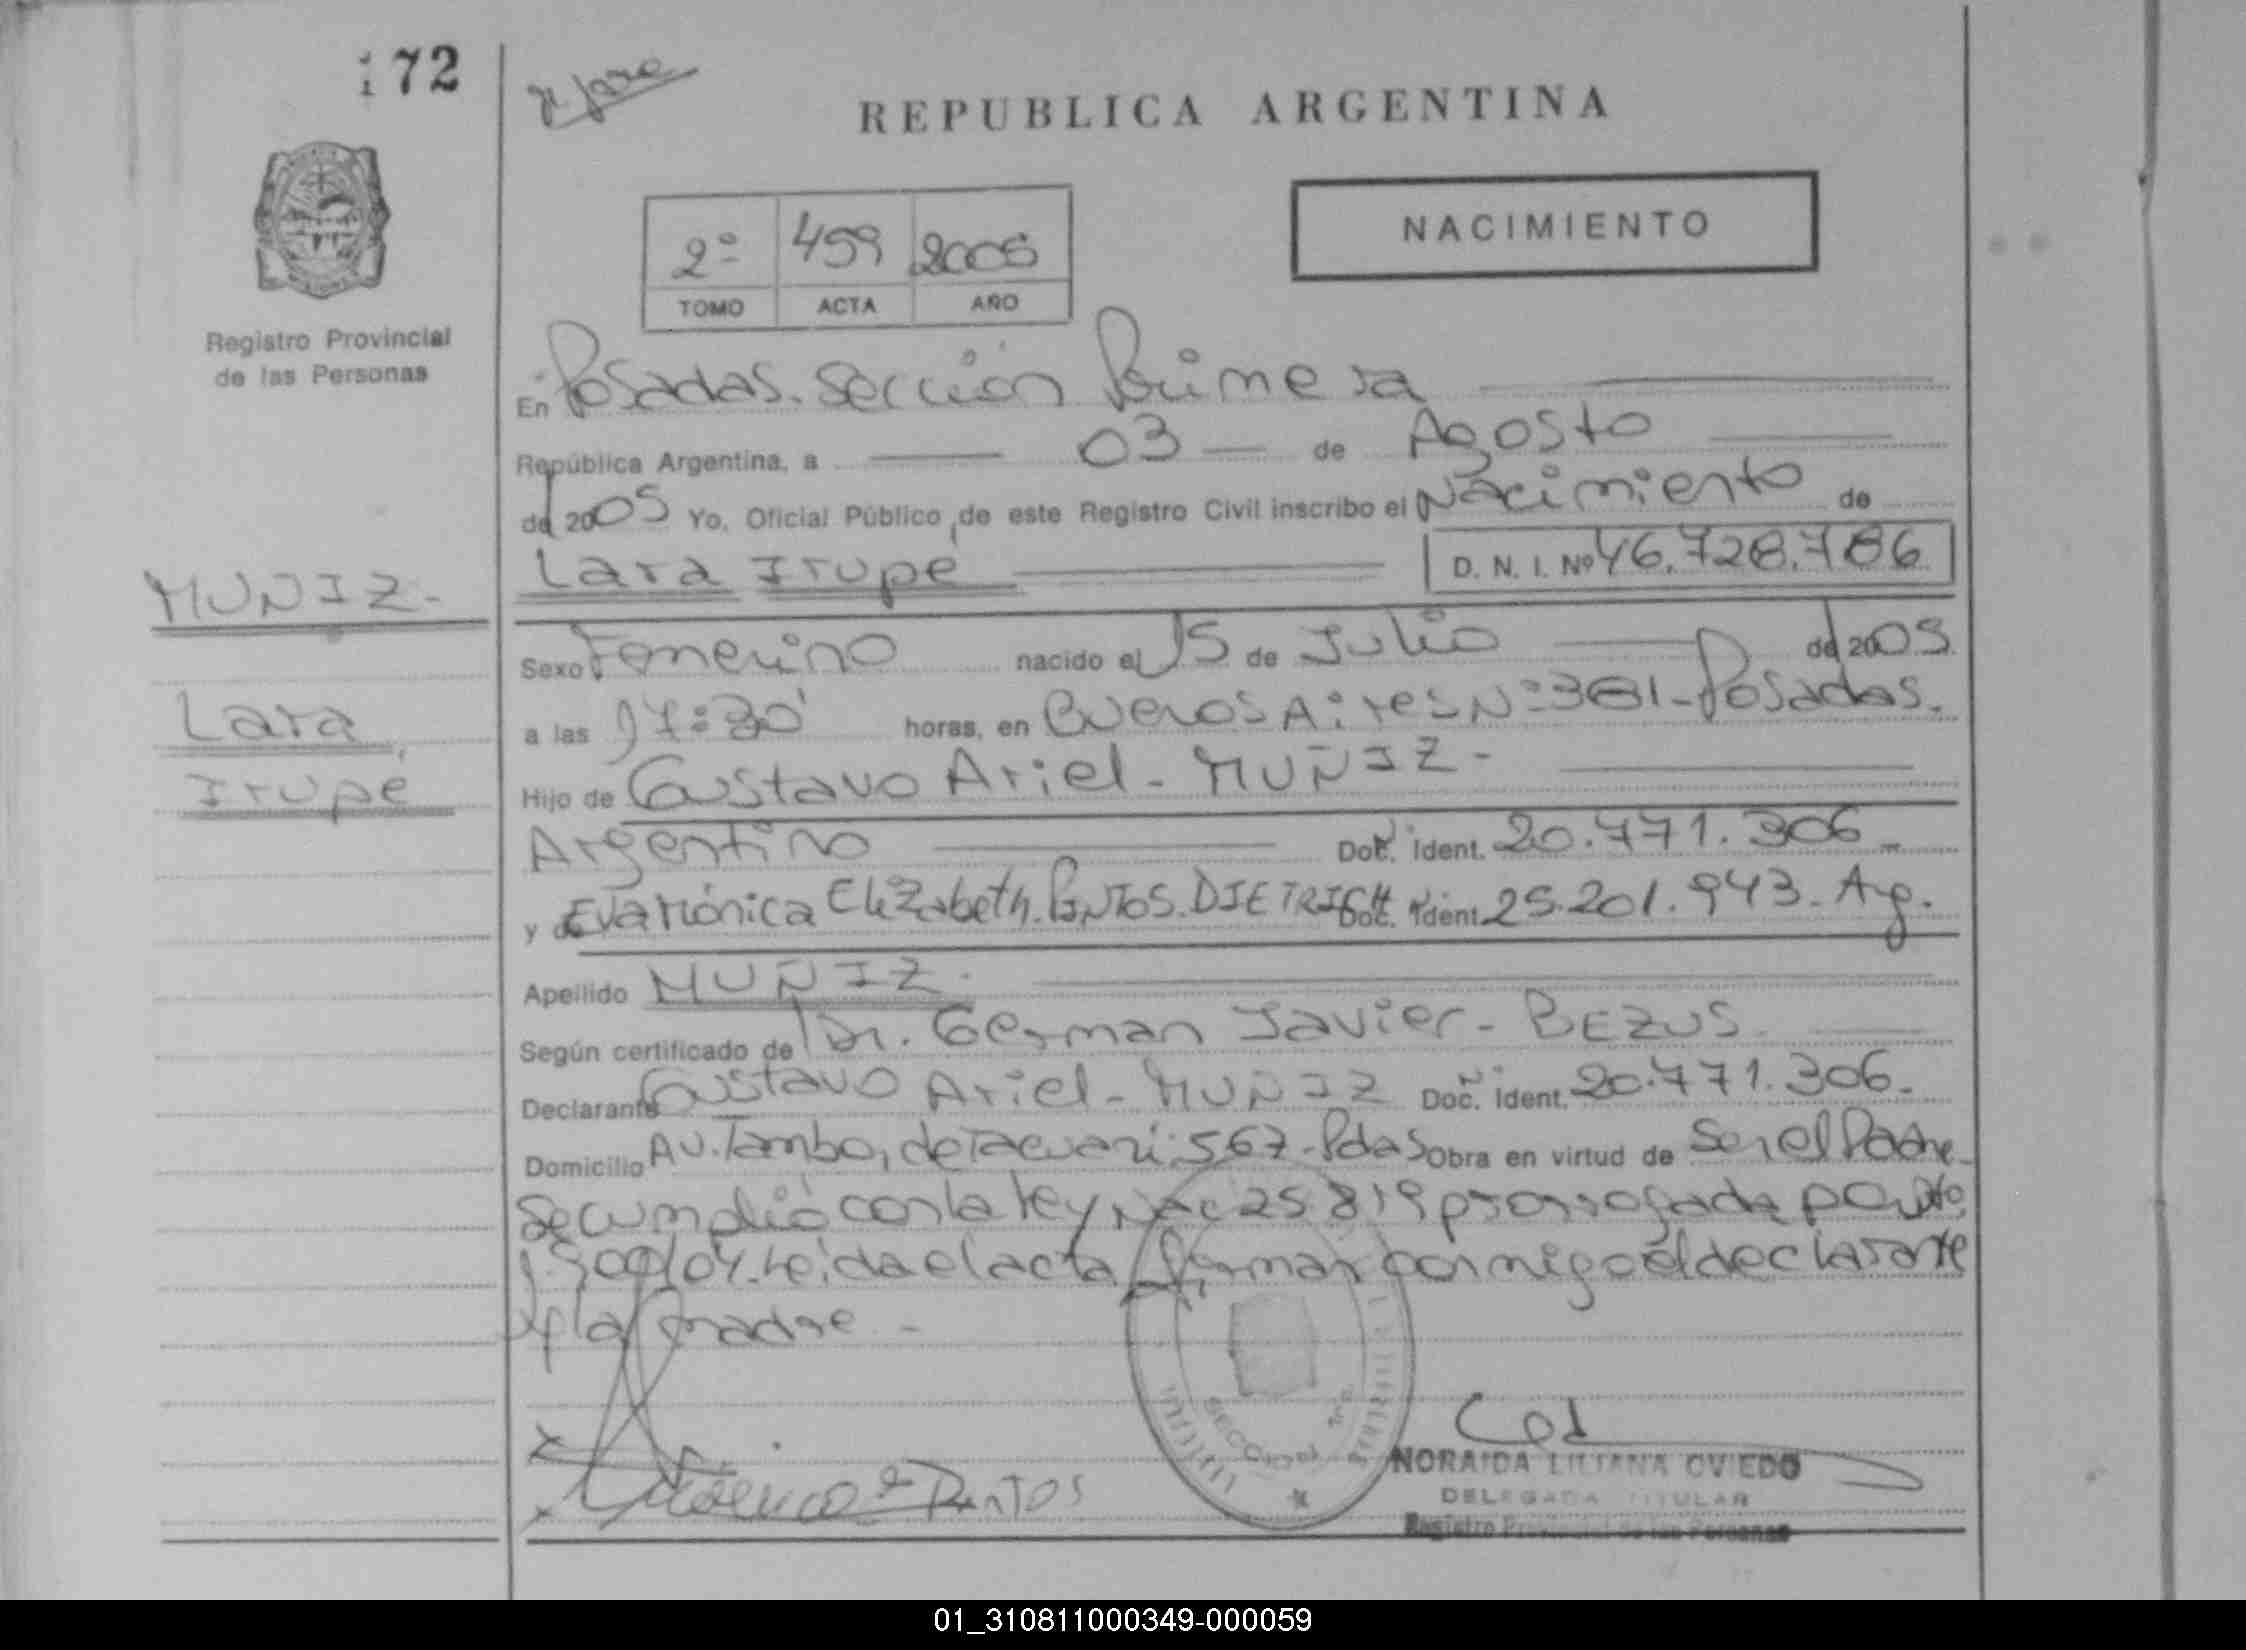 172
REPUBLICA ARGENTINA
NACIMIENTO
2º 459 2005
TOMO ACTA AÑO
Registro Provincial
de las Personas
En Posadas. Sección Primera
República Argentina, a 03 de Agosto
de 2005 Yo, Oficial Público de este Registro Civil inscribo el Nacimiento de
Lara Irupé D. N. I. Nº 46.728.786
MUÑIZ.-
Lara
Irupé
Sexo Femenino nacido el 15 de Julio de 2005
a las 17:30' horas, en Buenos Aires Nº 381 - Posadas.
Hijo de Gustavo Ariel - MUÑIZ -
Argentino Doc. Ident. 20.771.306
y de Eva Mónica Elizabeth. PINTOS. DIETRICH Doc. Ident. 25.201.943. Arg.
Apellido MUÑIZ.
Según certificado de Dr. German Javier - BEZUS.
Declarante Gustavo Ariel - MUÑIZ Doc. Ident. 20.771.306.
Domicilio Av. Tambor de Tacuari 567 - Pdas Obra en virtud de Ser el Padre
Se cumplió con la ley Nac 25819 prorrogada por Dto
1.500/04. Leída el acta firman conmigo el declarante
y la madre. -
SECCIONAL 1ra
NORAIDA LILIANA OVIEDO
DELEGADA TITULAR
Registro Provincial de las Personas
01_310811000349-000059